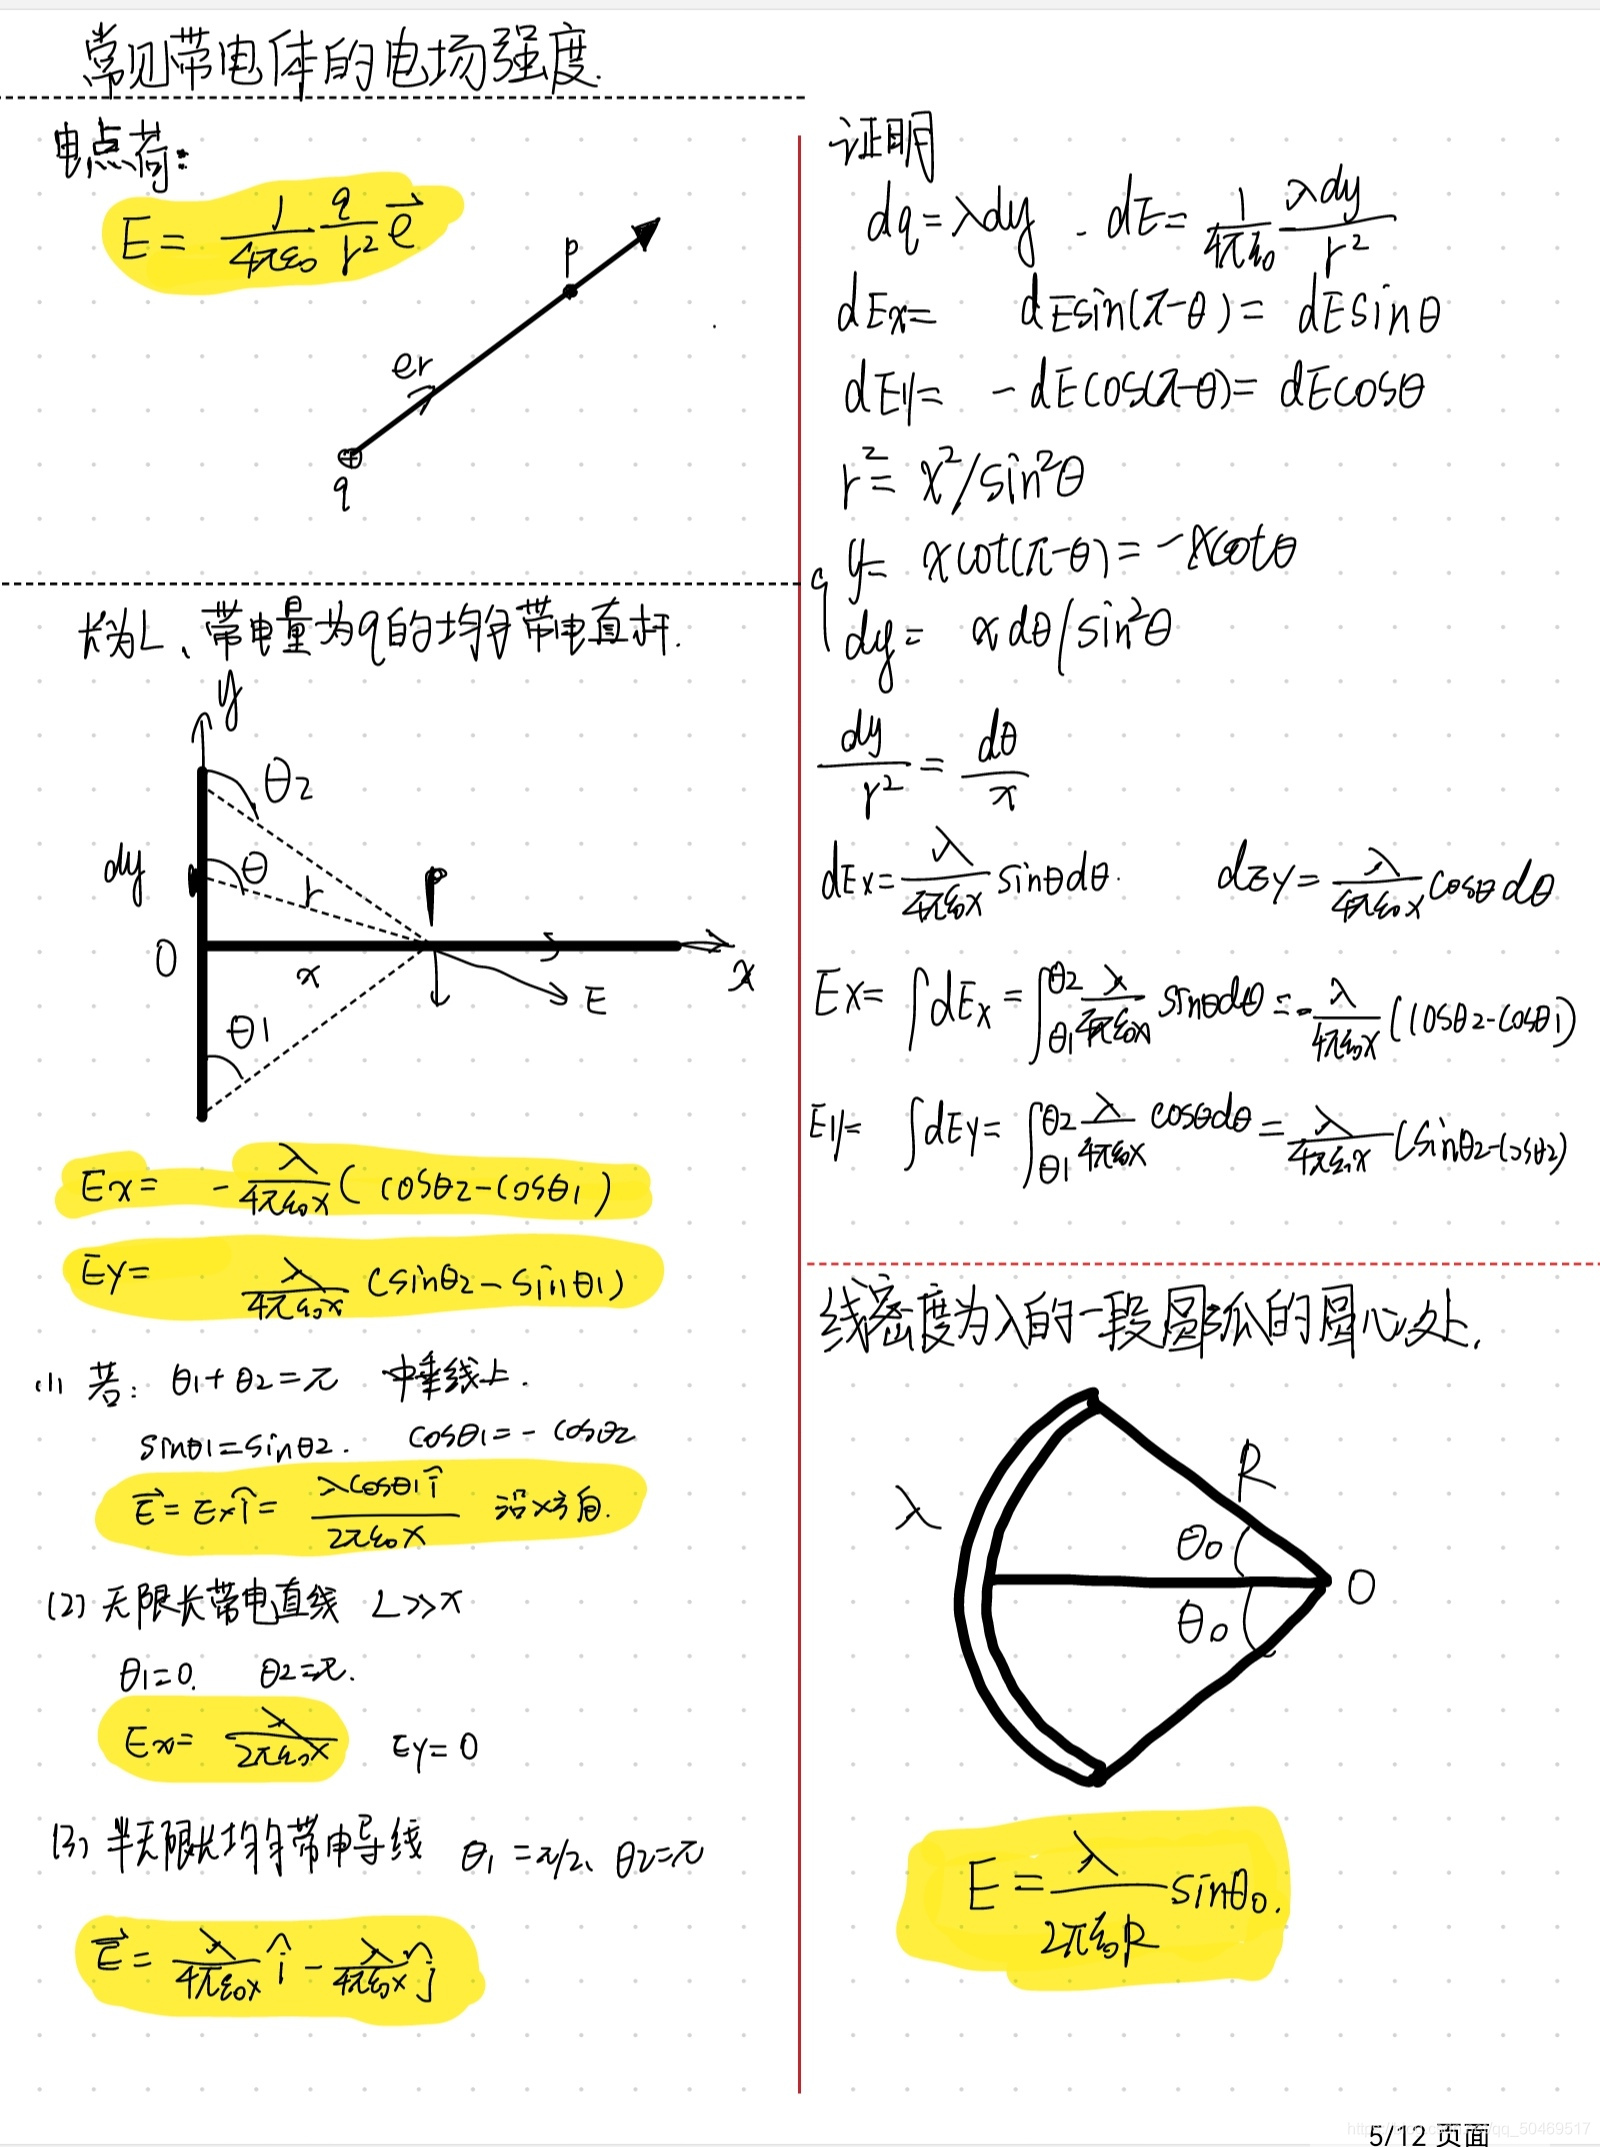 常见带电体的电场强度.
电点荷:
E = 1/4πε₀ q/r² e⃗
p
er
q
长为L、带电量为q的均匀带电直杆.
y
θ2
dy
θ
r
P
O
x
x
E
θ1
Ex= -λ/4πε₀x ( cosθ2-cosθ1 )
Ey= λ/4πε₀x (sinθ2-sinθ1)
(1) 若: θ1+θ2=π 中垂线上.
sinθ1=sinθ2. cosθ1=-cosθ2
E⃗=Exî= λcosθ1î/2πε₀x 沿x方向.
(2) 无限长带电直线 L>>x
θ1=0. θ2=π.
Ex= λ/2πε₀x Ey=0
(3) 半无限长均匀带电导线 θ1=π/2、θ2=π
E⃗= λ/4πε₀x î - λ/4πε₀x ĵ
证明
dq=λdy . dE= 1/4πε₀ λdy/r²
dEx= dEsin(π-θ)= dEsinθ
dEy= -dEcos(π-θ)= dEcosθ
r²= x²/sin²θ
y= xcot(π-θ)=-xcotθ
dy= xdθ/sin²θ
dy/r² = dθ/x
dEx= λ/4πε₀x sinθdθ. dEy= λ/4πε₀x cosθdθ
Ex= ∫dEx = ∫θ1θ2 λ/4πε₀x sinθdθ = -λ/4πε₀x (cosθ2-cosθ1)
Ey= ∫dEy= ∫θ1θ2 λ/4πε₀x cosθdθ = λ/4πε₀x (sinθ2-cosθ2)
线密度为λ的一段圆弧的圆心处.
R
λ
θ0
O
θ0
E= λ/2πε₀R sinθ0.
5/12 页面